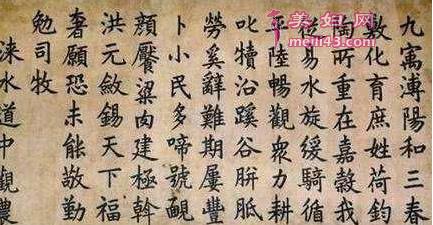 九寓溥陽和三春
敷化育庶姓荷鈞
陶所重在嘉穀我
從易水旋緩騎循
平陸暢觀眾力耕
叱犢沿蹊谷胼胝
勞奚辭難期屢豐
卜小民多啼號靦
顏饜粱肉建極斡
洪元斂錫天下福
奢願恐未能敬勤
勉司牧
淶水道中觀農
美妇网
meili43.com